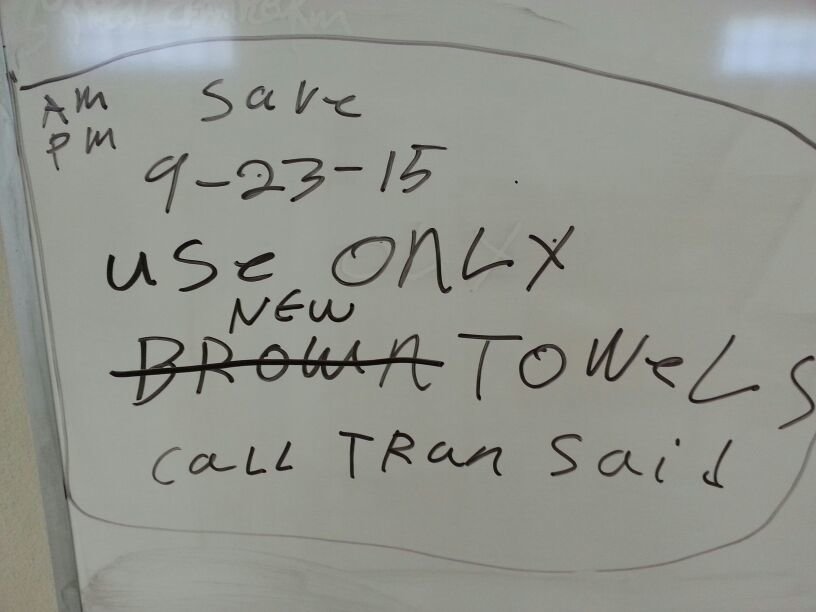 AM Save
PM
9-23-15
use ONLY
NEW
BROWN TOWeLS
CaLL TRan Said